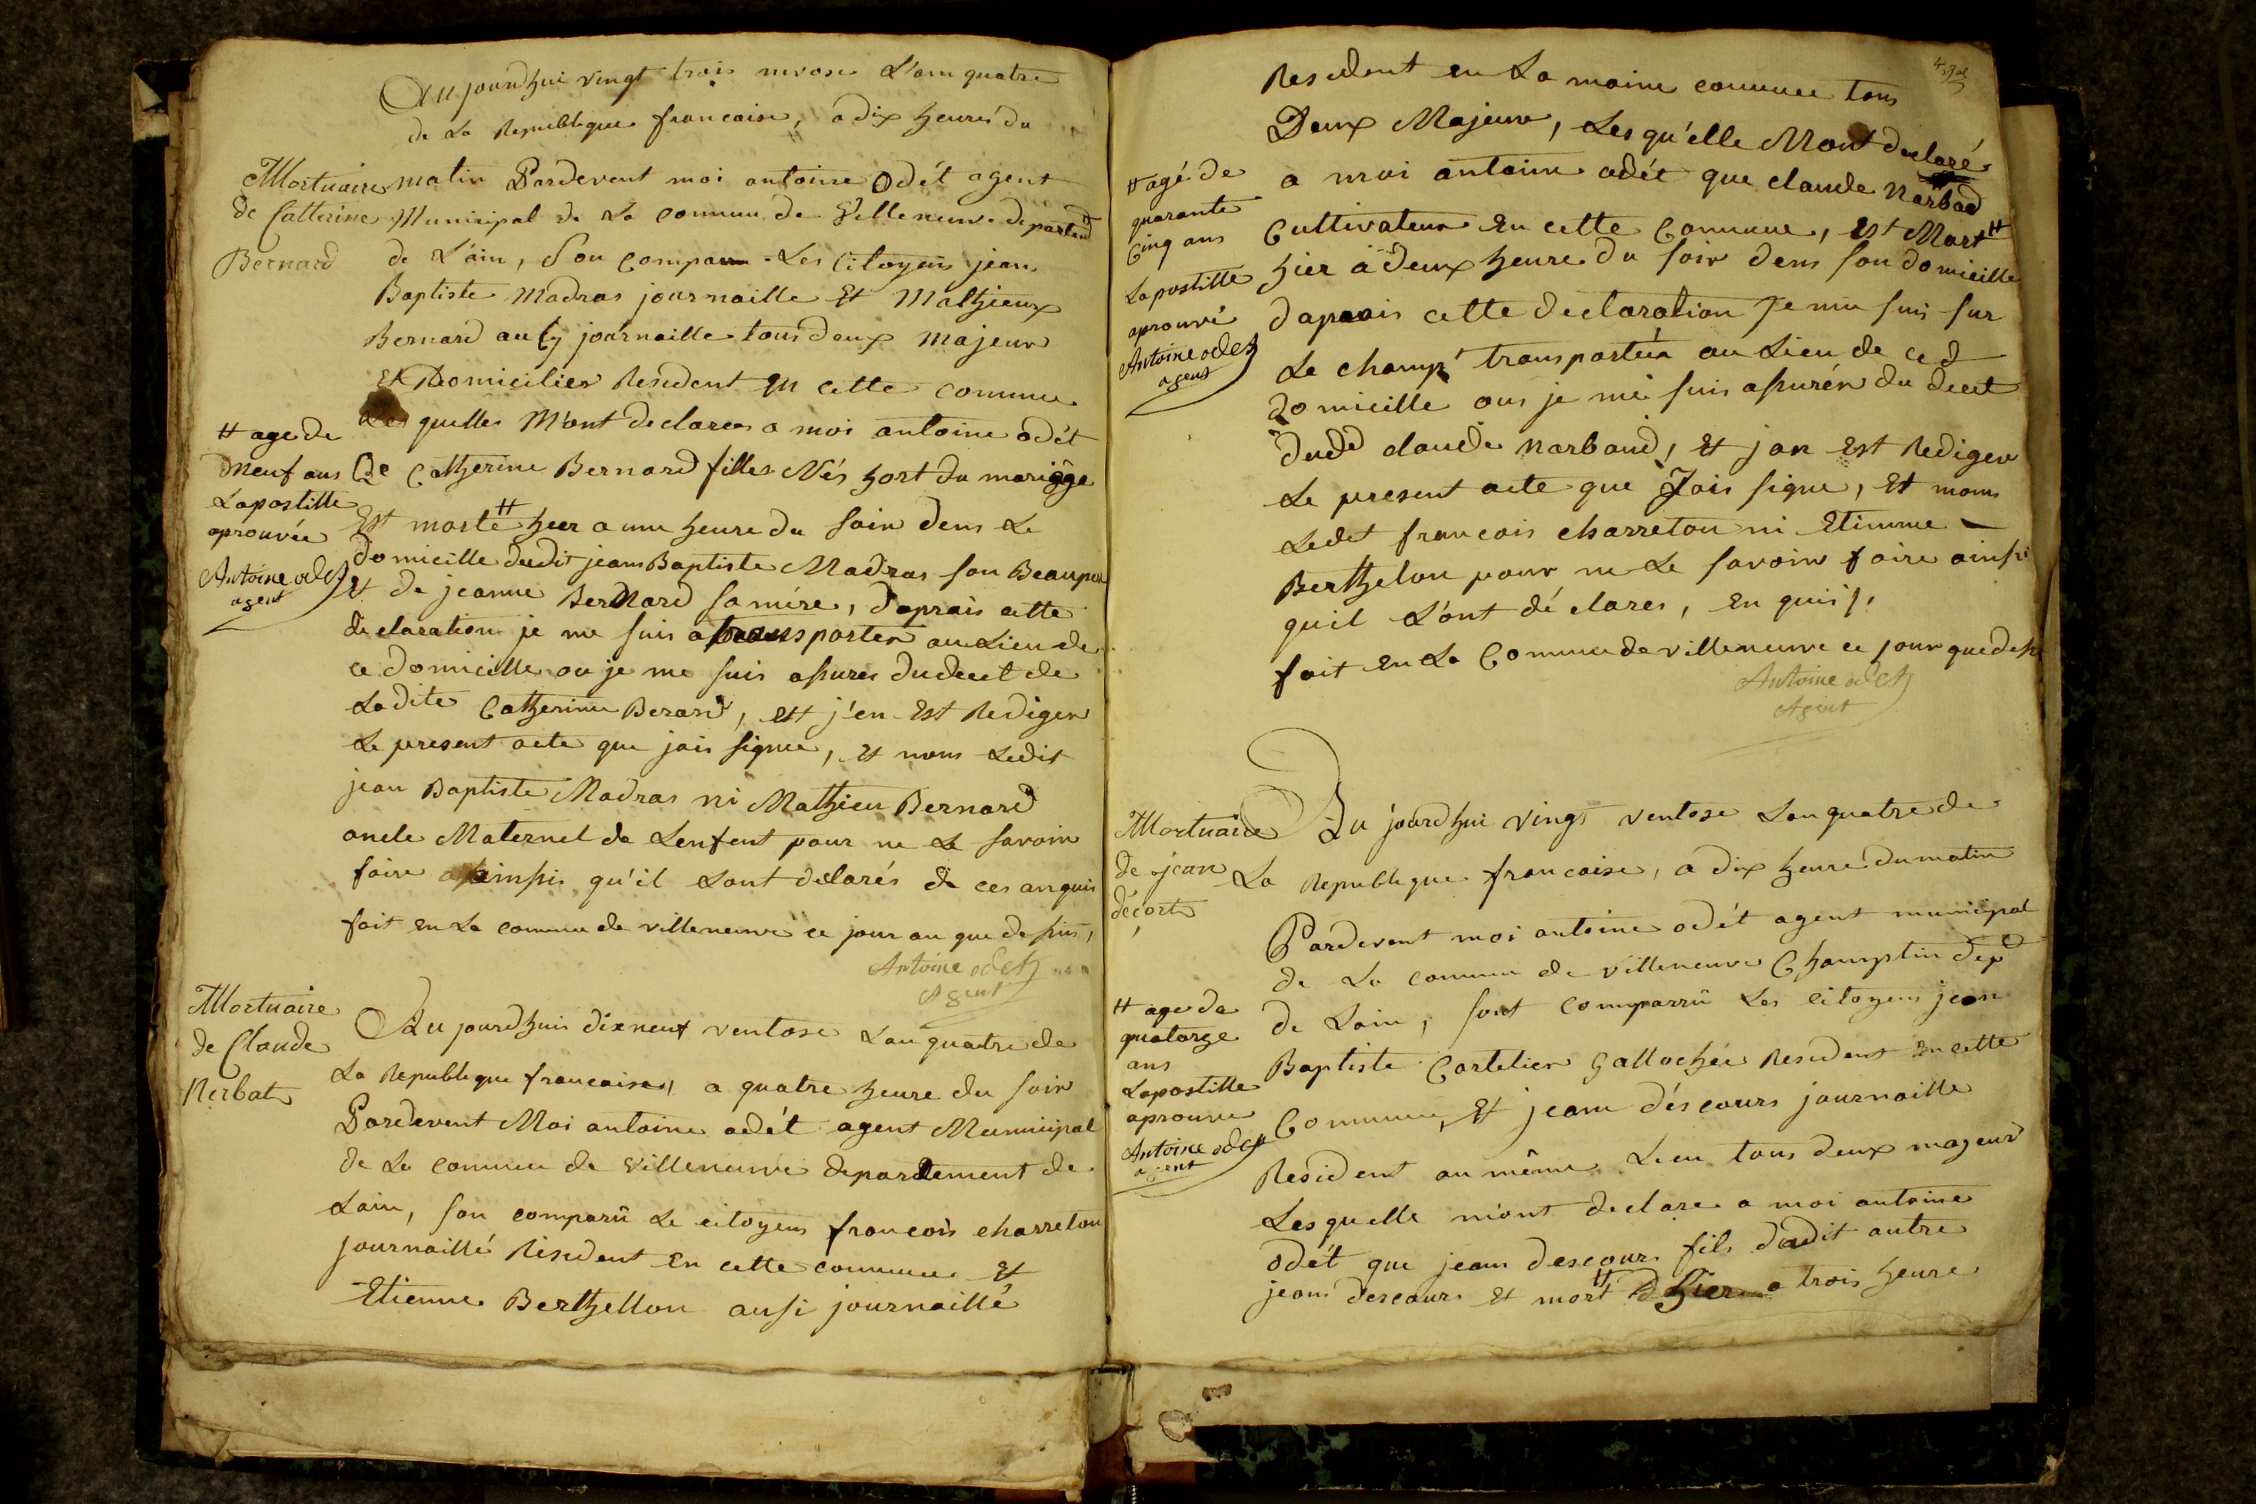 Aujourdhui vingt trois nivose L'am quatre
de La Republique francaise, a dix heures du
Mortuaire
de Catterine
Bernard
matin Pardevent moi antoine Odét agent
Municipal de La commune de Villeneuve departemd
de L'ain, Son Comparu Les Citoyens jean
Baptiste Madras journaille Et Mathieux
Bernard aussy journaille tous deux Majeur
Et Domicilier Resident En cette commune
Les quelles M'ont declares a moi antoine odét
Que Catherine Bernard filles Nés hort du mariage
Est morte # hier a une heure du Soir dens Le
domicille dudit jean Baptiste Madras son Beaupere
Et de jeanne Bernard Samére, daprais cette
declaration je me suis transporter au Lieu de
ce domicille ou je me suis assurer du decet de
Ladite Catherine Berard, Ett j'en Est Rediger
Le present acte que jais signee, Et nom Ledit
jean Baptiste Madras ni Mathieu Bernard
oncle Maternel de Lenfent pour ne Le savoir
faire ainssi qu'il Lont delarés de ces anquis
fait En La commune de villeneuve ce jour an que dessus,
Antoine odet
Agent
# age de
neuf ans
Lapostille
aprouvée
Antoine odet
agent
Mortuaire
de Claude
Nerbat
Au jourdhuis dixneuf ventose Lan quatre de
La Republique francaises, a quatre heure du soir
Pardevent Moi antoine odét agent Municipal
de La commune de Villeneuve departement de
Lain, son comparü Le citoyens francois charreton
journaillé Résident En cette commune Et
Etienne Berthellon aussi journaillé
Resident en La maime commune tous
Deux Majeure, Les qu'elle Mont declaré
a moi antoine odét que claude Narbad
Cultivateur En cette Commune, Est Mort #
hier a deux heure du soir dens son domicille
daprais cette declaration Je me suis sur
Le champ transportér au Lieu de ced
domicille ous je me suis assurér du decet
dudd claude Narbaud, Et jan Est Rediger
Le present acte que Jais signe, Et nom
Ledet francois charreton ni Etienne
Berthelon pour ne Le savoir faire ainssi
quil L'ont dé clares, En quis,
fait En La Commune de villeneuve ce jour que dessus
Antoine odet
Agent
# agé de
quarante
Cinq ans
Lapostille
aprouvé
Antoine odet
agent
Mortuaire
de jean
décorts
Au jourdhui vingt ventose Lan quatre de
La Republique francaise, a dix heure du matin
Pardevent moi antoine odét agent municipal
de La commune de Villeneuve Champtin depd
de Lain, sont comparrü Les citoyens jean
Baptiste Cortelier Gallochée Resident En cette
Commune, Et jean déscours journaille
Resident au même Lieu tous deux majeur
Lesquelle m'ont declare a moi antoine
odét que jean descours fils dudit autre
jean descours Et mort # hier a trois heure
# age de
quatorze
ans
Lapostille
aprouve
Antoine odet
agent